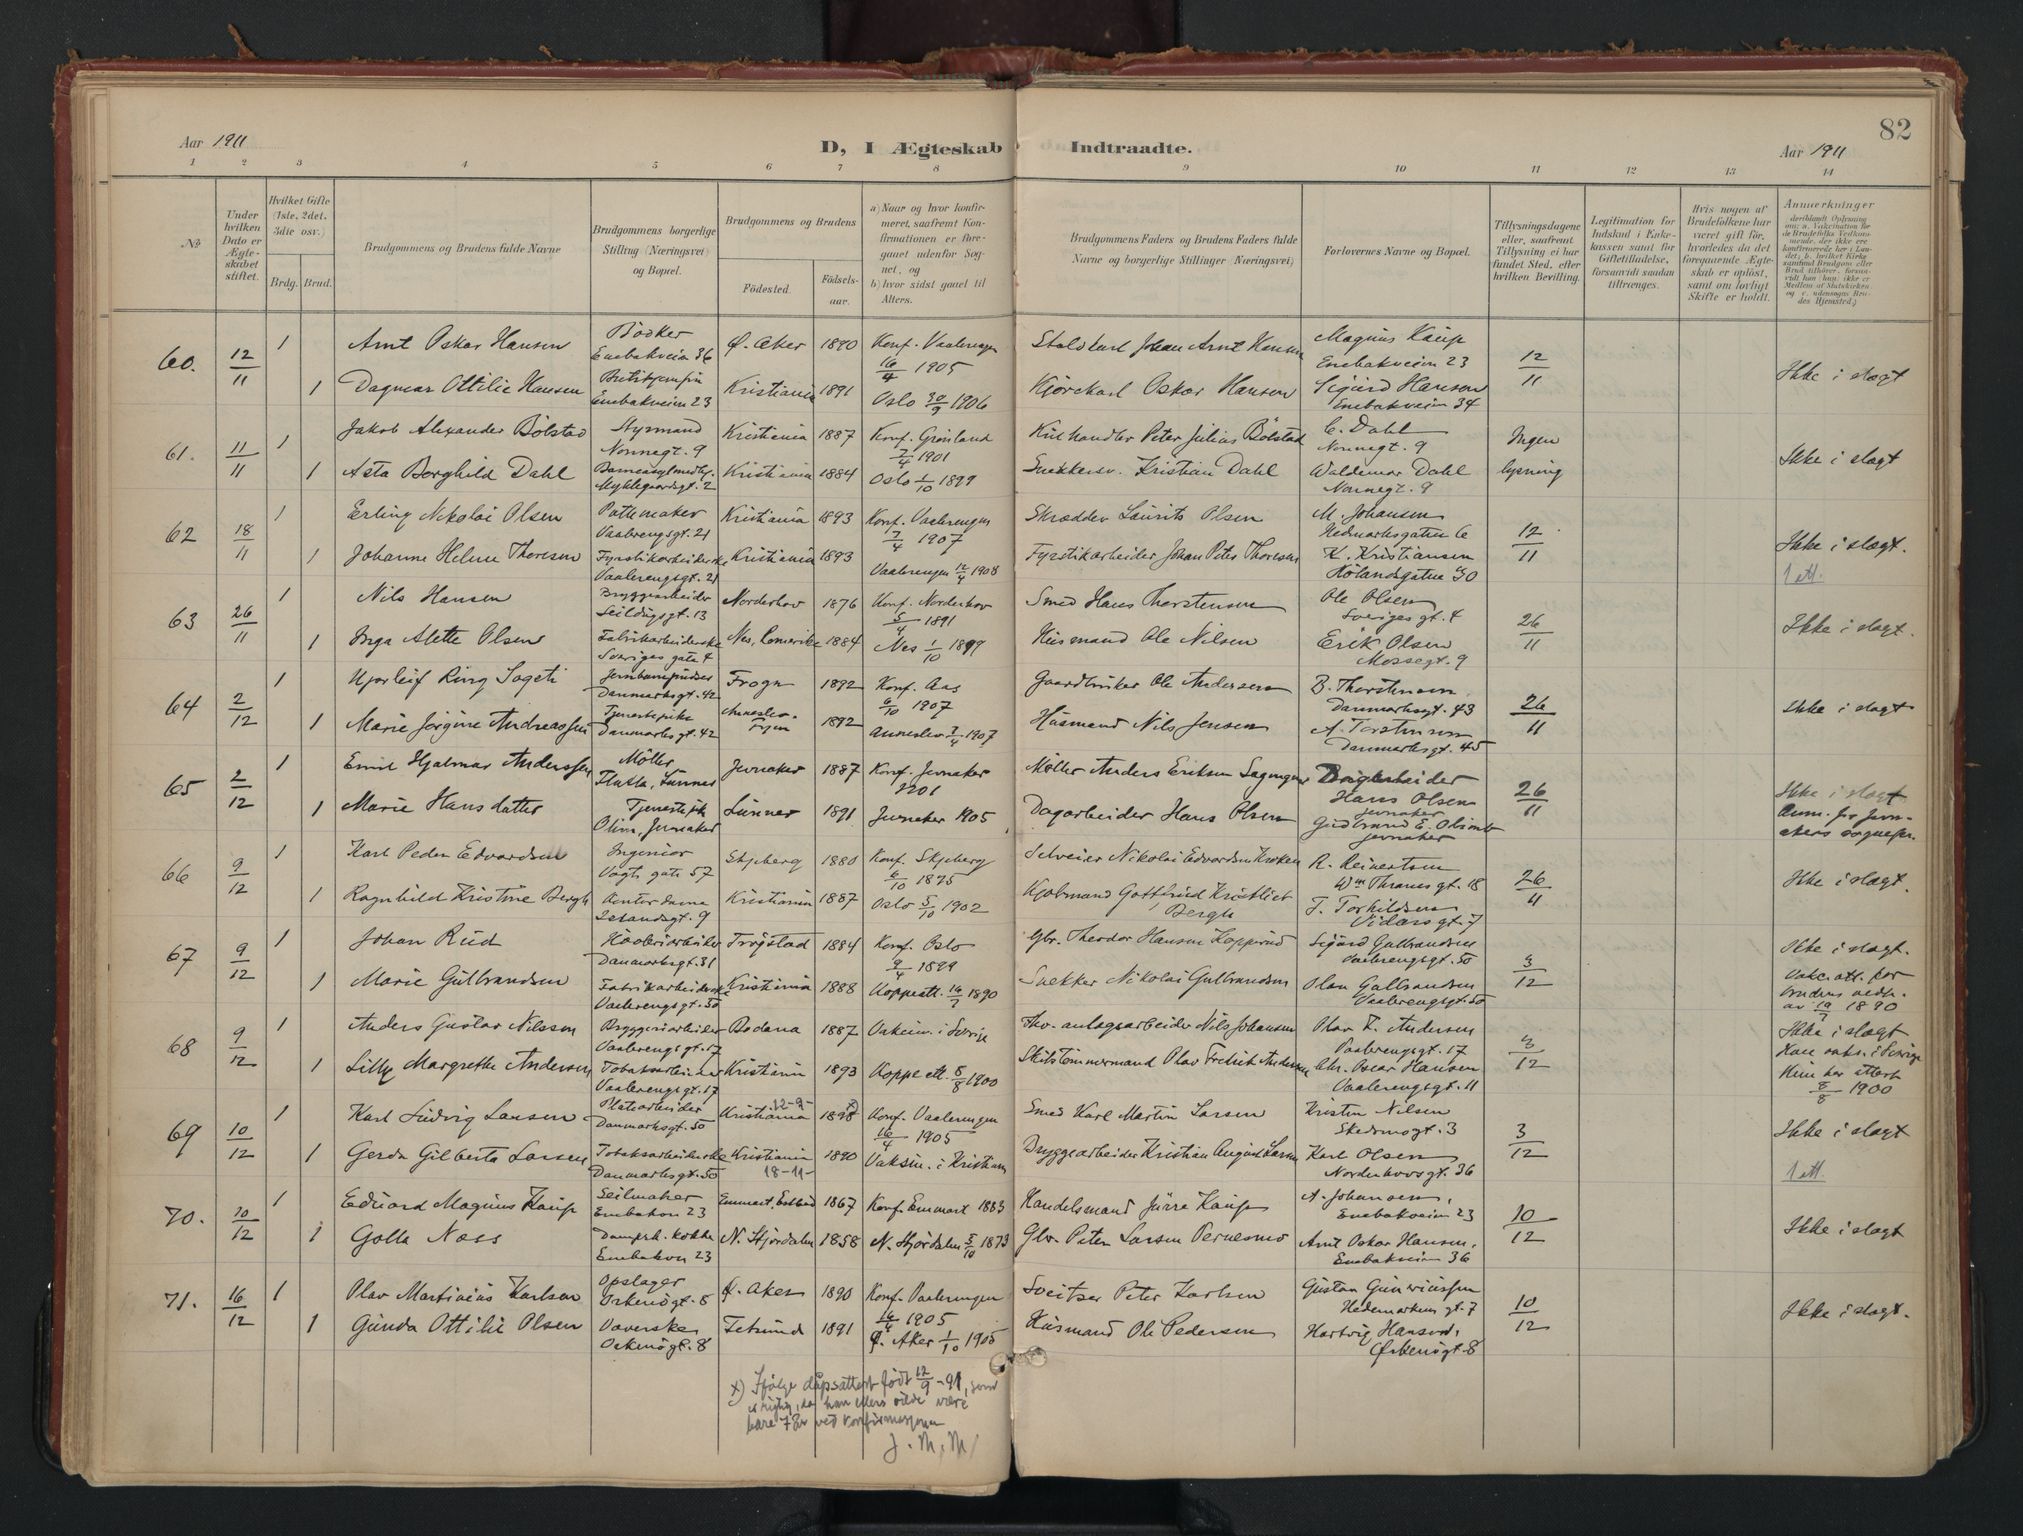 82
Aar 1911
D, I Ægteskab Indtraadte.
Aar 1911
1 2 3 4 5 6 7 8 9 10 11 12 13 14
No
Under hvilken Dato er Ægteskabet stiftet.
Hvilket Gifte (1ste, 2det, 3die osv.)
Brdg. Brud.
Brudgommens og Brudens fulde Navne
Brudgommens borgerlige Stilling (Næringsvei) og Bopæl.
Brudgommens og Brudens
Fødested.
Fødselsaar.
a) Naar og hvor konfirmeret, saafremt Konfirmationen er foregaaet udenfor Sognet, og
b) hvor sidst gaaet til Alters.
Brudgommens Faders og Brudens Faders fulde Navne og borgerlige Stillinger (Næringsvei)
Forlovernes Navne og Bopæl.
Tillysningsdagene eller, saafremt Tillysning ei har fundet Sted, efter hvilken Bevilling.
Legitimation for Indskud i Enkekassen samt for Giftetilladelse, forsaavidt saadan tiltrænges.
Hvis nogen af Brudefolkene har været gift før, hvorledes da det foregaaende Ægteskab er opløst, samt om lovligt Skifte er holdt.
Anmærkninger
60. 12/11 1 Arnt Oskar Hansen Bödker Enebakveien 36 Ø. Aker 1890 Konf. Vaalerengen 16/4 1905 Staldkarl Johan Arnt Hansen Magnus Kaup Enebakveien 23 12/11 Ikke i slægt
1 Dagmar Ottilie Hansen Enebakveien 23 Kristiania 1891 Oslo 30/9 1906 Kjørekarl Oskar Hansen Sigurd Hansen Enebakveien 34
61. 11/11 1 Jakob Alexander Bölstad Styrmand Nonnegt. 9 Kristiania 1887 Konf. Grønland 7/4 1901 Kulhandler Peter Julius Bölstad C. Dahl Nonnegt. 9 Ingen lysning Ikke i slægt
1 Asta Borghild Dahl Myklegaardsgt. 2 Kristiania 1884 Oslo 1/10 1899 Snekkersv. Kristian Dahl Waldemar Dahl Nonnegt. 9
62 18/11 1 Erling Nikolai Olsen Pottemaker Vaalerengsgt. 21 Kristiania 1893 Konf. Vaalerengen 7/4 1907 Skrædder Laurits Olsen M. Johansen Hedemarksgaten 6 12/11 Ikke i slægt. 1 att.
1 Johanne Helene Thoresen Fyrstikarbeiderske Vaalerengsgt. 21 Kristiania 1893 Vaalerengen 12/4 1908 Fyrstikarbeider Johan Peter Thoresen K. Kristiansen Hølandsgaten 30
63 26/11 1 Nils Hansen Bryggearbeider Seildugsgt. 13 Norderhov 1876 Konf. Norderhov 5/4 1891 Smed Hans Thorstensen Ole Olsen Sverigesgt. 4 26/11 Ikke i slægt.
1 Inga Alette Olsen Fabrikarbeiderske Sveriges gate 4 Nes, Romerike 1884 Nes 1/10 1899 Husmand Ole Nilsen Erik Olsen Mossegt. 9
64 2/12 1 Hjorleif Ring Sageti Jernbanepudser Danmarksgt. 42 Frogn 1892 Konf. Aas 6/10 1907 Gaardbruker Ole Andersen B. Thorstensen Danmarksgt. 43 26/11 Ikke i slægt
1 Marie Jørgine Andreassen Tjenestepike Danmarksgt. 42 Fyen 1892 Anneslev 7/4 1907 Husmand Nils Jensen A. Torstensen Danmarksgt. 45
65 2/12 1 Emil Hjalmar Anderssen Møller Lunner Jevnaker 1887 Konf. Jevnaker 1901 Møller Anders Eriksen Hans Olsen Jevnaker 26/11 Ikke i slægt
1 Marie Hansdatter Tjenestepike Jevnaker Lunner 1891 Jevnaker 1905 Dagarbeider Hans Olsen Gudbrand E. Jevnaker
66 9/12 1 Karl Peder Edvardsen Ingeniør Vogts gate 57 Skjeberg 1880 Konf. Skjeberg 6/10 1895 Nikolai Edvardsen R. Reinertsen Wm Thranes gt. 18 26/11 Ikke i slægt.
1 Ragnhild Kristine Bergh Kontordame Islandsgt. 9 Kristiania 1887 Oslo 5/10 1902 Kjøbmand Gottfried Kristlieb Bergh T. Torkildsen Vidarsgt. 7
67 9/12 1 Johan Rud Danmarksgt. 31 Trøgstad 1884 Konf. Oslo 9/4 1899 Gbr. Theodor Hansen Kopperud Sigurd Gulbrandsen Vaalerengsgt. 50 3/12 Ikke i slægt. Vakc. att. for brudens vedk. av 19/7 1890
1 Marie Gulbrandsen Fabrikarbeiderske Vaalerengsgt. 50 Kristiania 1888 Koppeatt. 16/7 1890 Snekker Nikolai Gulbrandsen Olav Gulbrandsen Vaalerengsgt. 50
68 9/12 1 Anders Gustav Nilsson Bryggeriarbeider Vaalerengsgt. 17 Bodana 1887 Vakcin. i Sverige Nils Johansen Olav F. Andersen Vaalerengsgt. 17 3/12 Ikke i slægt Han vakc. i Sverige Hun har attest 8/8 1900
1 Lilly Margrethe Andersen Tobakarbeider Vaalerengsgt. 17 Kristiania 1893 Koppeatt. 8/8 1900 Skibstømmermand Olav Fredrik Andersen Chr. Oscar Hansen Vaalerengsgt. 11
69 10/12 1 Karl Ludvig Larsen Platearbeider Danmarksgt. 50 Kristiania 12-9- 1898 x) Konf. Vaalerengen 16/4 1905 Smed Karl Martin Larsen Kristen Nilsen Skedsmogt. 3 3/12 Ikke i slægt 1 att.
1 Gerda Gilberta Larsen Tobaksarbeiderske Danmarksgt. 50 Kristiania 18-11- 1890 Vaksin. i Kristiania Bryggearbeider Kristian August Larsen Karl Olsen Norderhovsgt. 36
70. 10/12 1 Eduard Magnus Kaup Seilmaker Enebakvn 23 Emmast, Estland 1867 Konf. Emmast 1883 Handelsmand Jürre Kaup A. Johansen, Enebakveien 23 10/12 Ikke i slægt
1 Golla Næss Dampsk. kokke Enebakvn 23 N. Stjørdalen 1858 N. Stjørdalen 5/10 1873 Gbr. Peter Larsen Pernesmo Arnt Oskar Hansen, Enebakveien 36
71. 16/12 1 Olav Martinius Karlsen Opslager Ørkenøgt. 8 Ø. Aker 1890 Konf. Vaalerengen 16/4 1905 Sveitser Peter Karlsen Gustav Guneriussen Hedemarkens gt. 7 10/12 Ikke i slægt.
1 Gunda Ottilie Olsen Væverske Ørkenøgt. 8 Fetsund 1891 Ø. Aker 1/10 1905 Husmand Ole Pedersen Hartvig Hansen, Ørkenøgt. 8
x) Ifølge dåpsattest født 12/9-91, som
er riktig, da han ellers vilde være
bare 7 år ved konfirmasjonen
J. M. M